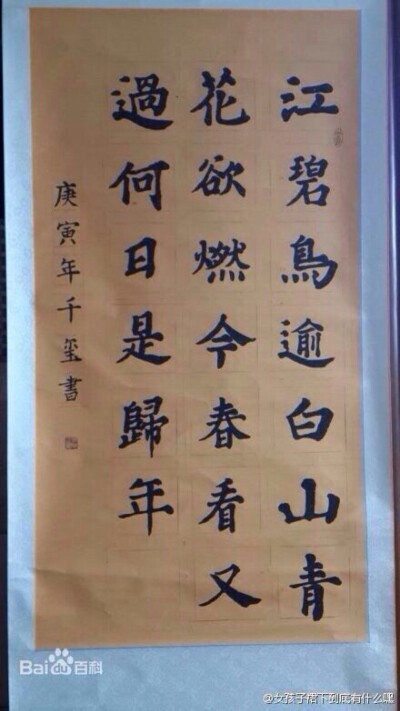 江碧鳥逾白山青
花欲燃今春看又
過何日是歸年
庚寅年千璽書
Bai百科
@女孩子裙下到底有什么嘿